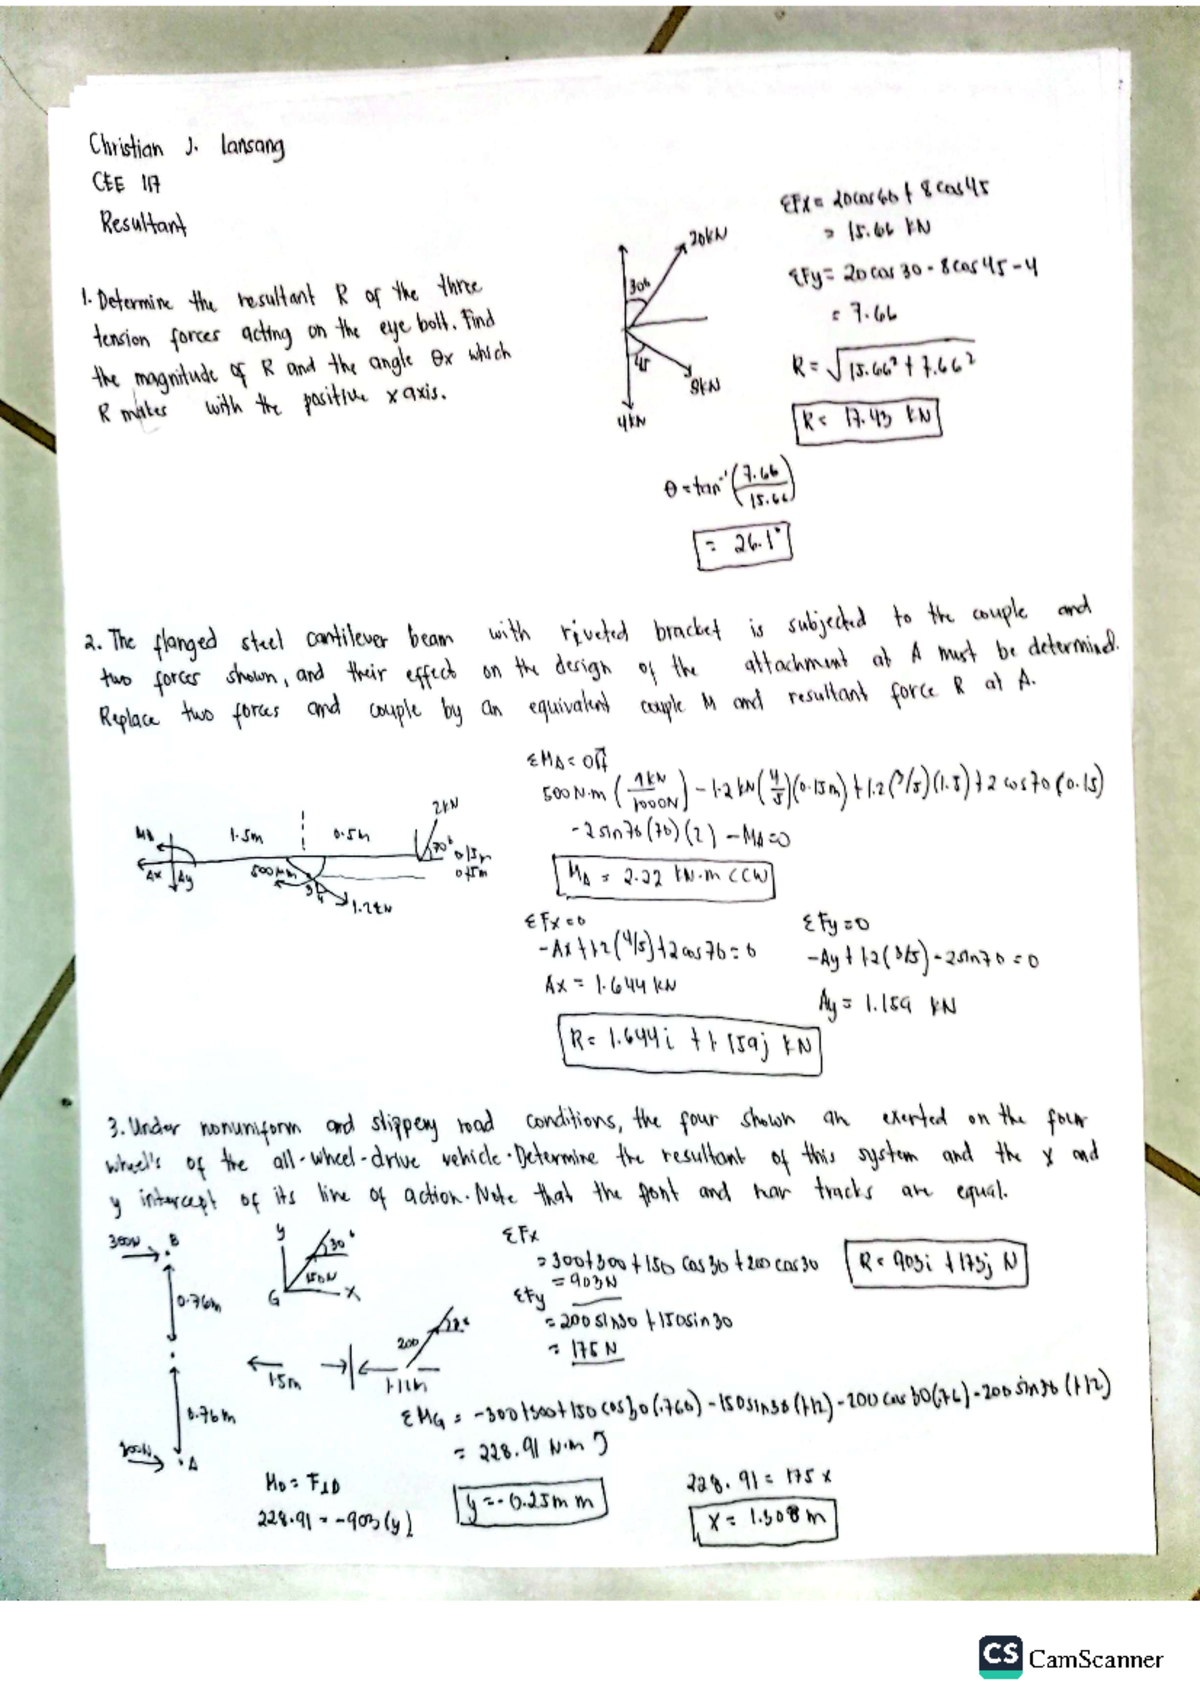 Christian J. Lansang
CEE 117
Resultant
1. Determine the resultant R of the three
tension forces acting on the eye bolt. Find
the magnitude of R and the angle θx which
R makes with the positive x axis.
20kN
30°
45
8kN
4kN
ΣFx = 20cos60 + 8cos45
= 15.66 kN
ΣFy = 20cos30 - 8cos45 - 4
= 7.66
R = √15.66² + 7.66²
R = 17.43 kN
θ = tan⁻¹(7.66/15.66)
= 26.1°
2. The flanged steel cantilever beam with riveted bracket is subjected to the couple and
two forces shown, and their effect on the design of the attachment at A must be determined.
Replace two forces and couple by an equivalent couple M and resultant force R at A.
MA
1.5m
0.5m
2kN
70°
0.15m
0.15m
Ax
Ay
500 N.m
3
4
1.2kN
ΣMA = 0
500 N.m (1kN/1000N) - 1.2 kN(4/5)(0.15m) + 1.2(3/5)(1.5) + 2 cos70(0.15)
- 2sin70(70)(2) - MA = 0
MA = 2.22 kN.m CCW
ΣFx = 0
-Ax + 1.2(4/5) + 2cos70 = 0
Ax = 1.644 kN
ΣFy = 0
-Ay + 1.2(3/5) - 2sin70 = 0
Ay = 1.159 kN
R = 1.644i + 1.159j kN
3. Under nonuniform and slippery road conditions, the four shown an exerted on the four
wheel's of the all-wheel-drive vehicle. Determine the resultant of this system and the x and
y intercept of its line of action. Note that the front and rear tracks are equal.
300N
B
0.76m
0.76m
A
y
30°
150N
G
X
200
1.5m
ΣFx
= 300+300+150 cos30+200cos30
= 903N
ΣFy
= 200sin30 + 150sin30
= 175 N
R = 903i + 175j N
= 228.91 N.m
228.91 = -903(y)
228.91 = 175x
X = 1.308m
CS CamScanner